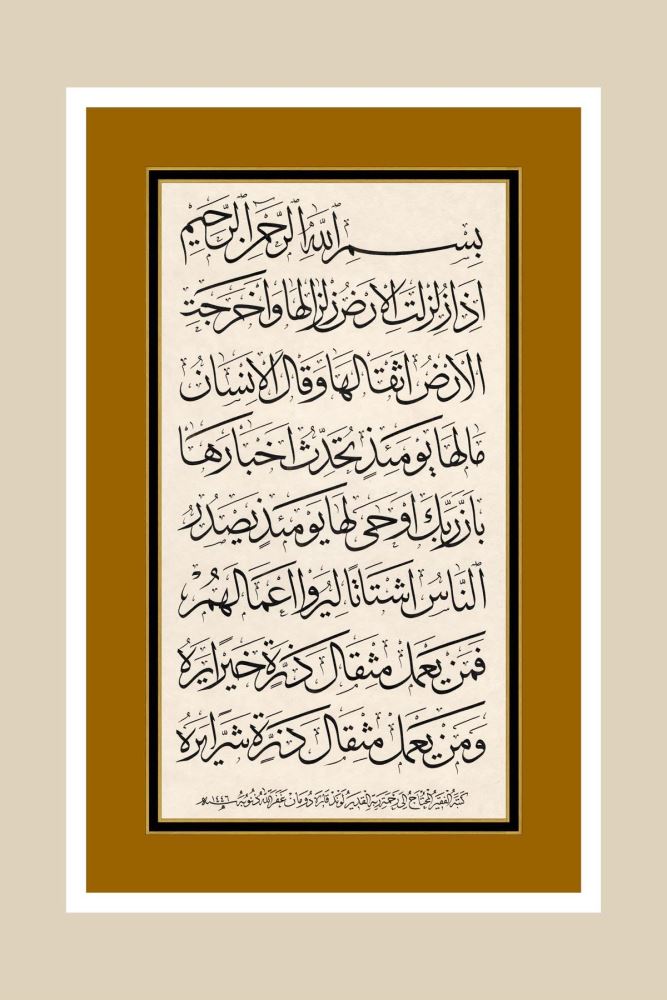 بِسْمِ اللّٰهِ الرَّحْمٰنِ الرَّحِيمِ
اِذَا زُلْزِلَتِ الْاَرْضُ زِلْزَالَهَا وَاَخْرَجَتِ
الْاَرْضُ اَثْقَالَهَا وَقَالَ الْاِنْسَانُ
مَا لَهَا يَوْمَئِذٍ تُحَدِّثُ اَخْبَارَهَا
بِاَنَّ رَبَّكَ اَوْحٰى لَهَا يَوْمَئِذٍ يَصْدُرُ
النَّاسُ اَشْتَاتًا لِيُرَوْا اَعْمَالَهُمْ
فَمَنْ يَعْمَلْ مِثْقَالَ ذَرَّةٍ خَيْرًا يَرَهُ
وَمَنْ يَعْمَلْ مِثْقَالَ ذَرَّةٍ شَرًّا يَرَهُ
كتبه الفقير المحتاج إلى رحمة ربه القدير لوند قاره دومان غفر الله ذنوبه سنه ١٤٤٦